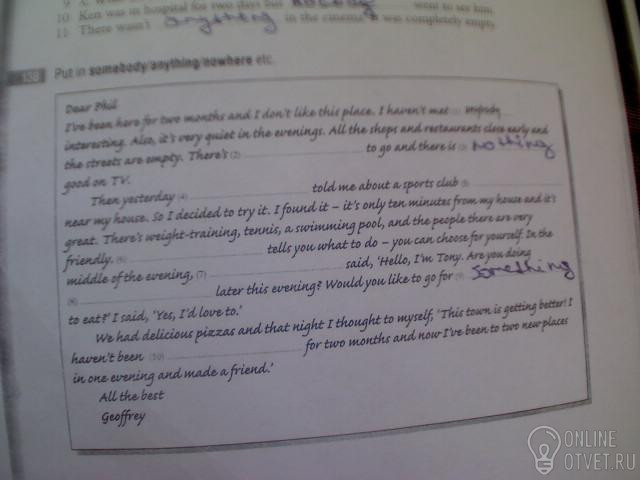 10 Ken was in hospital for two days but nobody went to see him.
11 There wasn't anything in the cinema. It was completely empty.
138 Put in somebody/anything/nowhere etc.
Dear Phil
I've been here for two months and I don't like this place. I haven't met (1) anybody
interesting. Also, it's very quiet in the evenings. All the shops and restaurants close early and
the streets are empty. There's (2) to go and there is (3) nothing
good on TV.
Then yesterday (4) told me about a sports club (5)
near my house. So I decided to try it. I found it – it's only ten minutes from my house and it's
great. There's weight-training, tennis, a swimming pool, and the people there are very
friendly. (6) tells you what to do – you can choose for yourself. In the
middle of the evening, (7) said, 'Hello, I'm Tony. Are you doing
(8) later this evening? Would you like to go for (9) something
to eat?' I said, 'Yes, I'd love to.'
We had delicious pizzas and that night I thought to myself, 'This town is getting better! I
haven't been (10) for two months and now I've been to two new places
in one evening and made a friend.'
All the best
Geoffrey
ONLINE
OTVET.RU